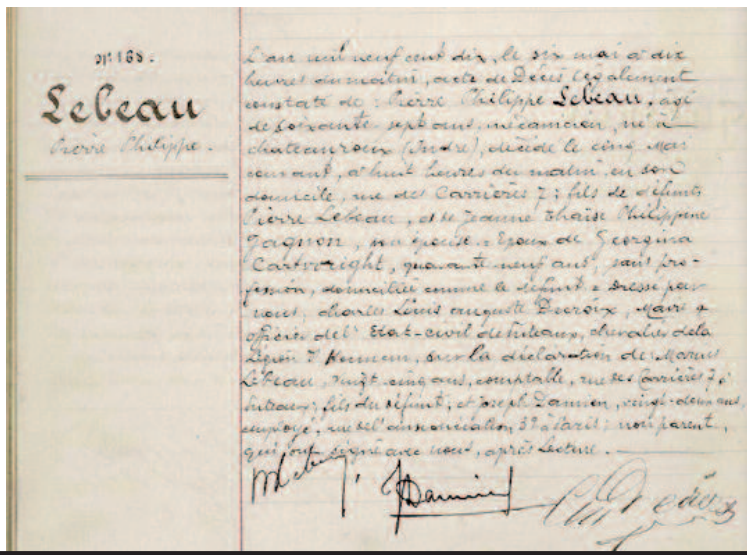 N° 168.
Lebeau
Pierre Philippe.
L'an mil neuf cent dix, le six mai à dix
heures du matin, acte de Décès légalement
constaté de : Pierre Philippe Lebeau, âgé
de soixante sept ans, mécanicien, né à
chateauroux (Indre), décédé le cinq Mai
courant, à huit heures du matin, en son
domicile, rue des Carrières 7; fils de défunts
Pierre Lebeau, et de Jeanne Thaïse Philippine
Gagnon, sa épouse. Epoux de Georgina
Cartwright, quarante neuf ans, sans pro-
fession, domiciliée comme le défunt. Dressé par
nous, Charles Louis auguste Ducroix, Maire &
officier de l'Etat-civil de Puteaux, chevalier de la
Légion d'Honneur, sur la déclaration de: Marius
Lebeau, vingt-cinq ans, comptable, rue des Carrières 7, à
Puteaux; fils du défunt; et Joseph Damien, vingt-deux ans,
employé, rue de l'annonciation, 39 à Paris; non parent,
qui ont signé avec nous, après Lecture.